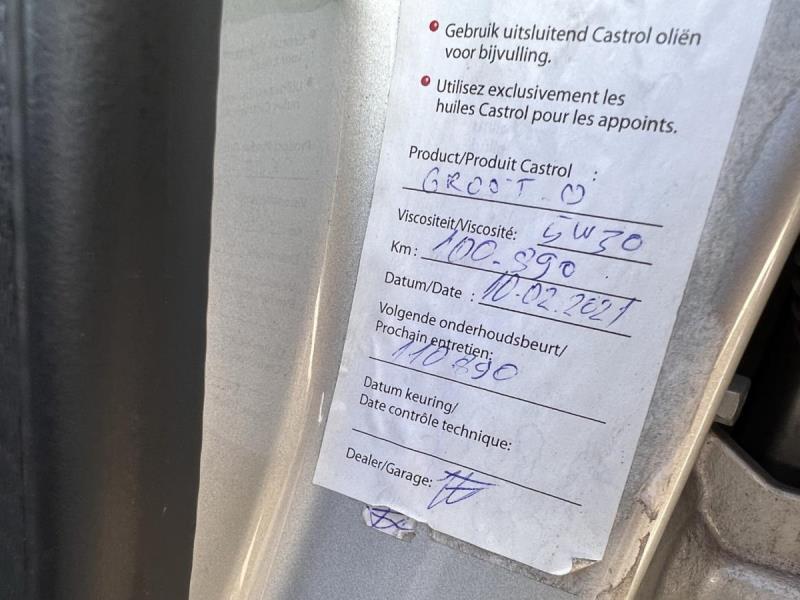 Gebruik uitsluitend Castrol oliën
voor bijvulling.
Utilisez exclusivement les
huiles Castrol pour les appoints.
Product/Produit Castrol :
GROOT-O
Viscositeit/Viscosité: 5W30
Km: 100-890
Datum/Date : 10.02.2021
Volgende onderhoudsbeurt/
Prochain entretien:
110890
Datum keuring/
Date contrôle technique:
Dealer/Garage: